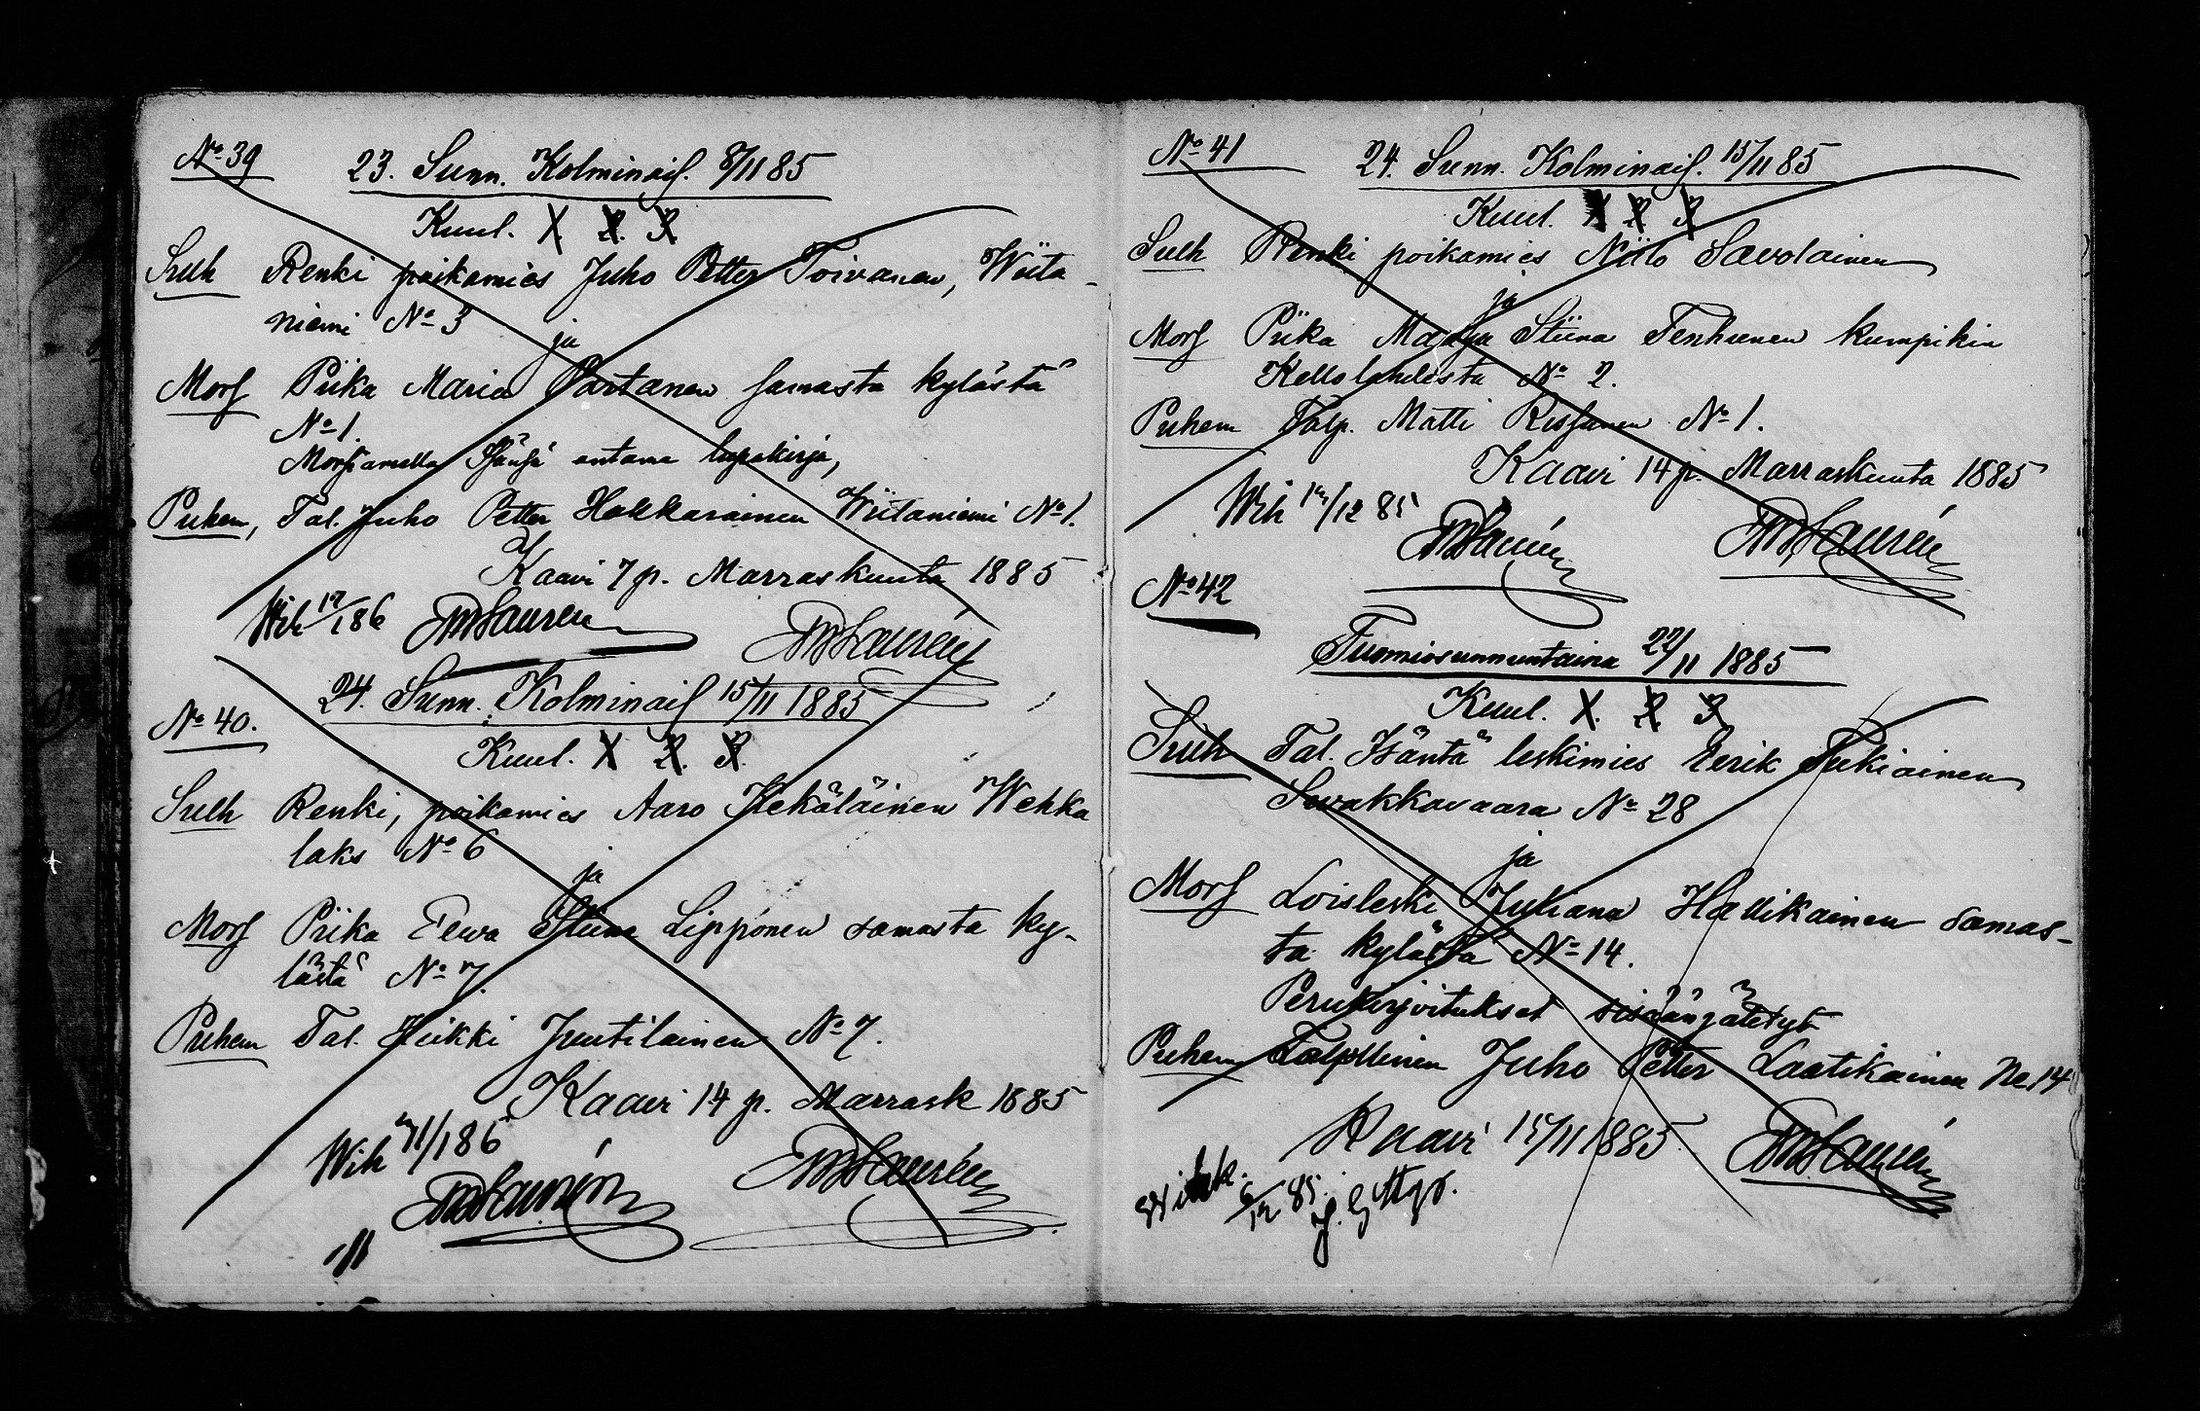 No 39
23. Sunn. Kolminais. 8/11 85
Kuul. 1 2. 3.
Sulh Renki poikamies Juho Petter Toivanen, Wiita-
niemi No 3
ja
Mors Piika Maria Partanen samasta kylästä
No 1.
antama lupakirja,
Puhem, Tal. Juho Petter Hakkarainen Wiitaniemi No 1.
Kaavi 7 p. Marraskuuta 1885
Wih 17/1 86 Laurén Laurén
24. Sunn. Kolminais 15/11 1885
No 40.
Kuul. 1 2. 3.
Sulh Renki, poikamies Aaro Kekäläinen Wehka
laks No 6
ja
Mors Piika Eewa Stiina Lipponen samasta ky-
lästä No 7.
Puhem Tal. Heikki Juutilainen No 7.
Kaavi 14 p. Marrask 1885
Wih /1 86
Laurén Laurén
No 41
24. Sunn. Kolminais. 15/11 85
Kuul. 1 2 3
Sulh Renki poikamies Niilo Savolainen
ja
Mors Piika Maija Stiina Tenhunen kumpikin
Kellolahdesta No 2.
Puhem Talp. Matti Rissanen No 1.
Kaavi 14 p. Marraskuuta 1885
Wih /12 85 Laurén Laurén
No 42
Tuomiosunnuntaina 22/11 1885
Kuul. 1. 2. 3
Sulh Tal. Isäntä leskimies Eerik Tukiainen
Siwakkavaara No 28
ja
Mors Loisleski Juliana Hallikainen samas-
ta kylästä No 14.
Perukirjoitukset sisäänjätetyt
Puhem Juho Petter Laatikainen No 14
Kaavi 15/11 1885. Laurén
6/12 85.